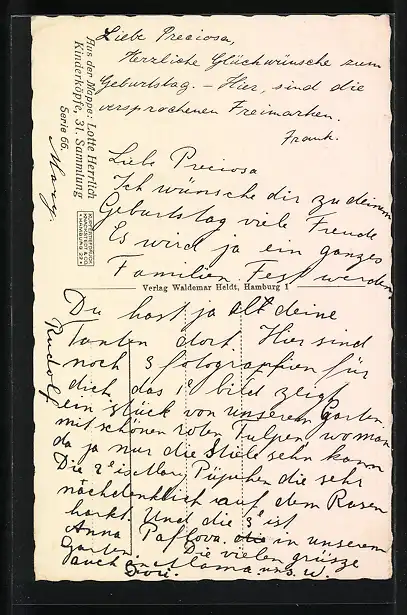 Liebe Preciosa,
Herzliche Glückwünsche zum
Geburtstag. – Hier, sind die
versprochenen Freimarken.
Frank.
Aus der Mappe: Lotte Herrlich
Kinderköpfe, 31. Sammlung
Serie 66.
Mary
Liebe Preciosa
Ich wünsche dir zu deinem
Geburtstag viele Freude
Es wird ja ein ganzes
Familien Fest werden
Verlag Waldemar Heldt, Hamburg 1
Du hast ja all deine
Tanten dort. Hier sind
noch 3 fotographien für
dich, das 1e bild zeigt
ein stück von unserem Garten,
mit schönen roten Tulpen wo man
da ja nur die Stiele sehn kann
Die 2e ist die sehr
nachdenklich auf dem Rasen
harkt. Und die 3e ist
Anna Paflova, die in unserem
Garten. Die vielen grüsze
auch an Mama u.s.w.
Rudolf